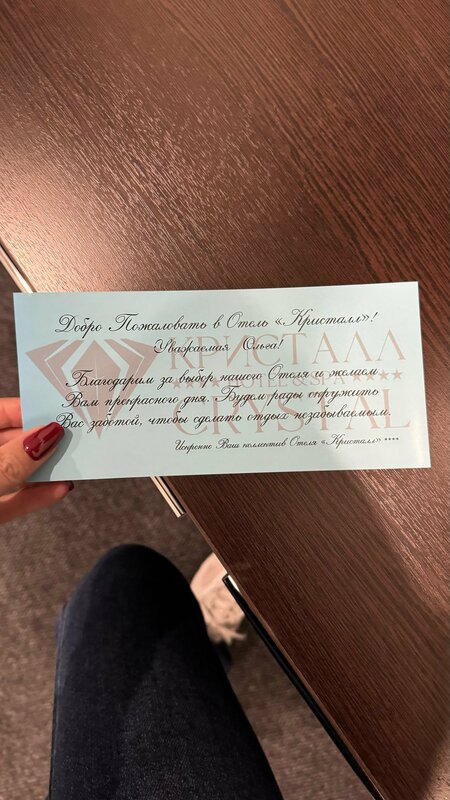 Добро Пожаловать в Отель «Кристалл»!
Уважаемая Ольга!
КРИСТАЛЛ
Благодарим за выбор нашего Отеля и желаем
HOTEL & SPA ****
Вам прекрасного дня. Будем рады окружить
CRYSTAL
Вас заботой, чтобы сделать отдых незабываемым.
Искренне Ваш коллектив Отеля «Кристалл» ****